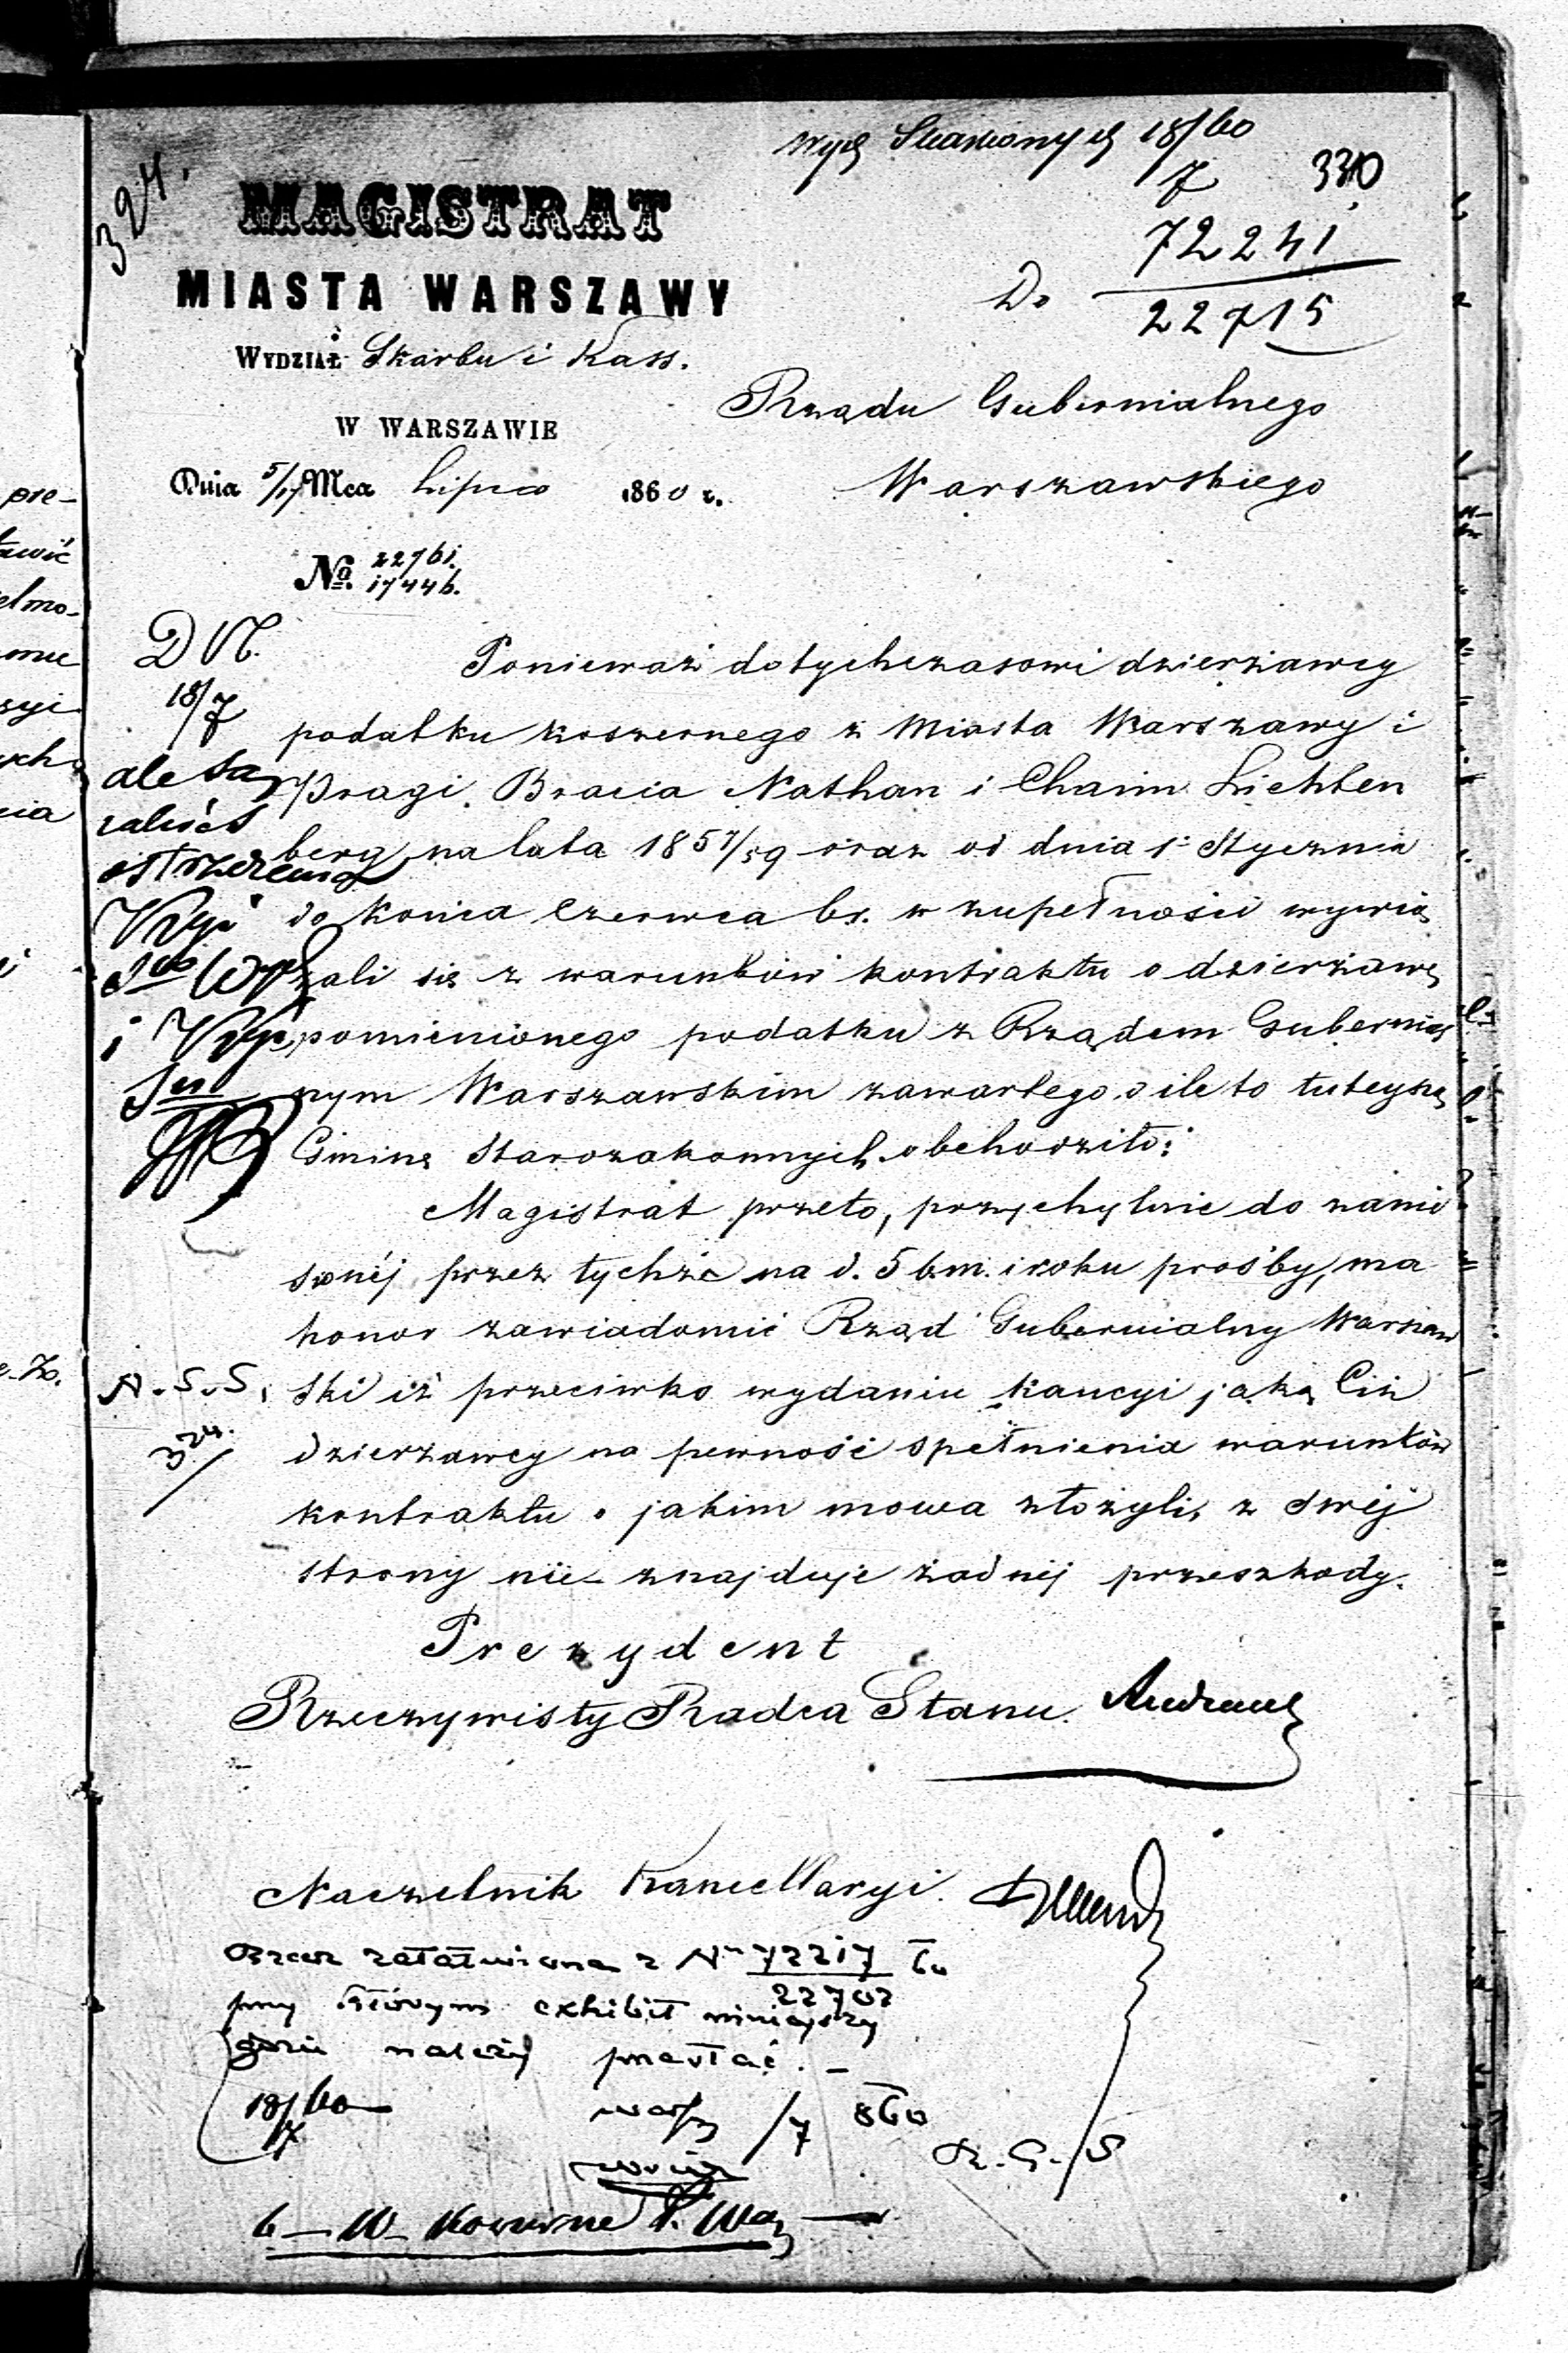 324.
18/60
7
330
72241
Do 22715
MAGISTRAT
MIASTA WARSZAWY
WYDZIAŁ Skarbu i Kass.
W WARSZAWIE
Dnia 5/17 Mca Lipca 1860 r.
No. 22761.
17446.
Rządu Gubernialnego
Warszawskiego
18/7
Ponieważ dotychczasowi dzierżawcy
podatku koszernego z Miasta Warszawy i
Pragi, Bracia Nathan i Chaim Lichten
berg, na lata 1857/59 oraz od dnia 1. Stycznia
do końca Czerwca br. w zupełności wywią
zali się z warunków kontraktu o dzierżawę
pomienionego podatku z Rządem Gubernial
nym Warszawskim zawartego, o ile to tutejszą
Gminę Starozakonnych obchodziło;
Magistrat przeto, przychylnie do zanie
sionéj przez tychże na d. 5 b.m. i roku prośby, ma
honor zawiadomić Rząd Gubernialny Warszaw
ski iż przeciwko wydaniu kaucyi jaką Ciż
dzierżawcy na pewność spełnienia warunków
kontraktu o jakim mowa złożyli, z swéj
strony nie znajduje żadnéj przeszkody.
A.S.S.
324.
Prezydent
Rzeczywisty Radca Stanu.
Naczelnik Kancellaryi.
Rzecz załatwiona z No 72217 60
22702
przy którym exhibit niniejszy
należy przesłać.
18/60
7
/7 860
R.G.S